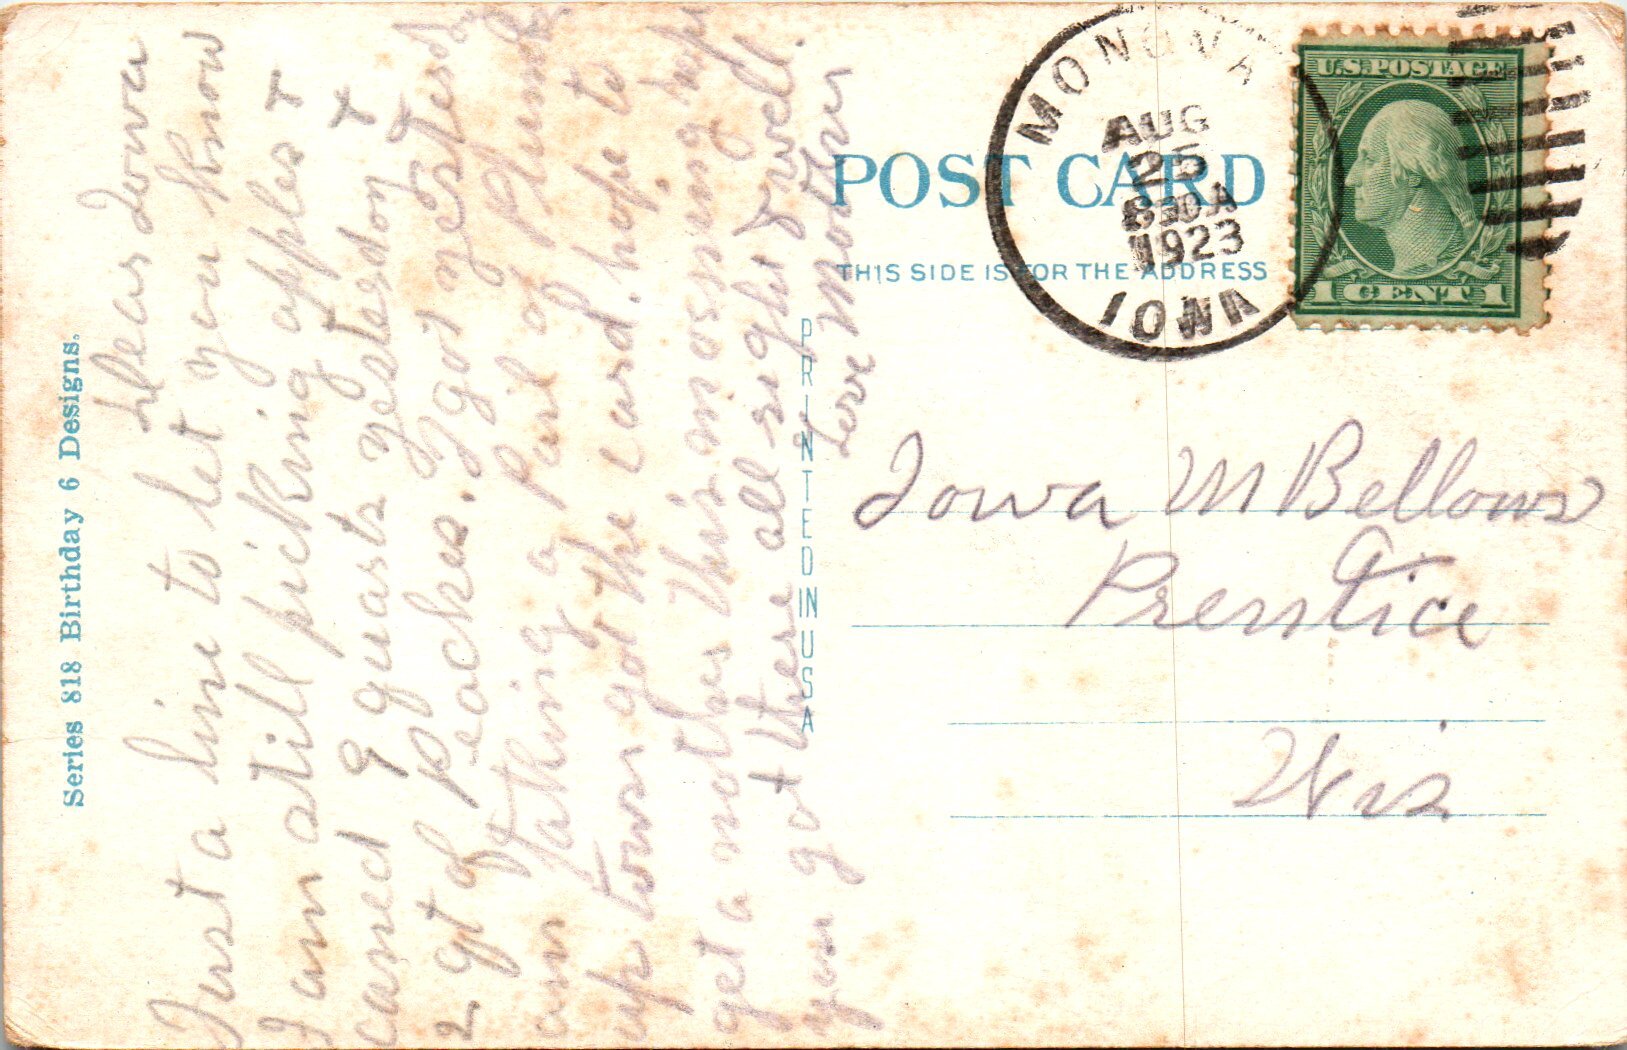 Series 818 Birthday 6 Designs.
Dear Iowa
Just a line to let you know
I am still picking apples &
caned 9 quarts yesterday &
2 qt of Peaches. I got yesterday
am taking a Pail of Plums
up town got the card. hope to
get a nother this morning hope
you got there all right & well.
Love Mother
MONONA
AUG
25
830A
1923
IOWA
U.S. POSTAGE
1 CENT 1
POST CARD
THIS SIDE IS FOR THE ADDRESS
PRINTED IN USA
Iowa M Bellows
Prentice
Wis